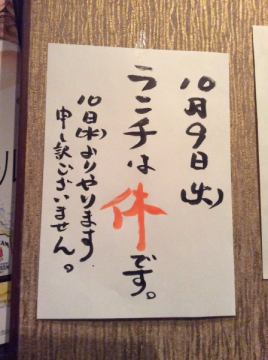 10月9日(火)
ランチは休です。
10日(水)よりやります
申し訳ございません。